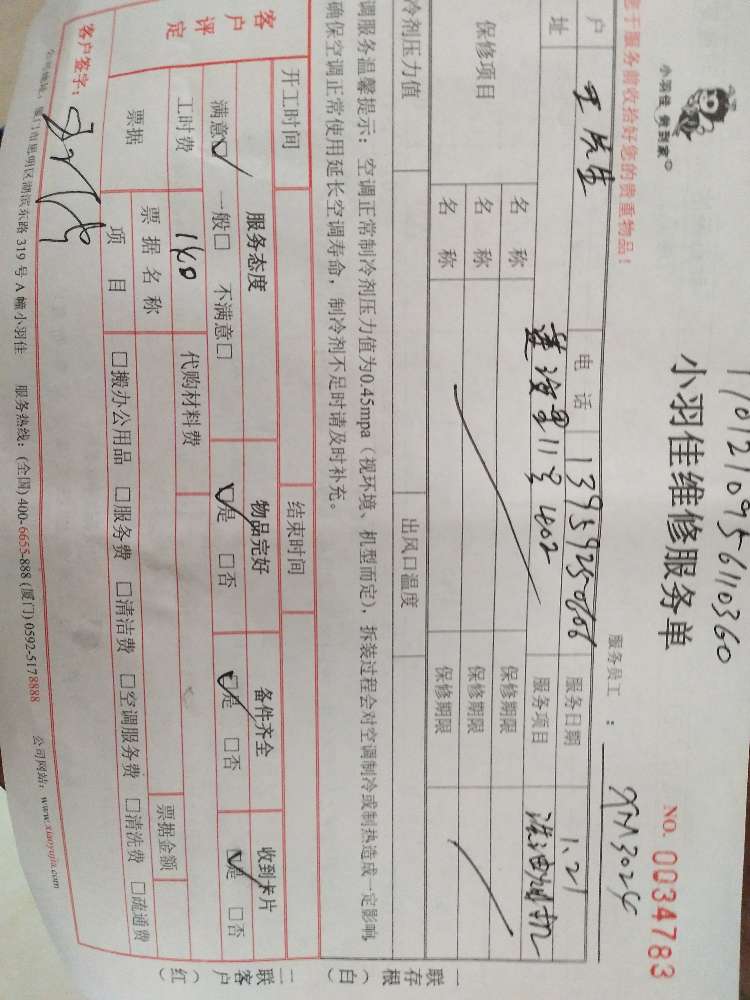 1701210956110360
小羽佳 做到家
小羽佳维修服务单
NO. 0034783
您于服务前收拾好您的贵重物品！
服务员工：
XM3024
户 王先生 电话 13959250606 服务日期 1.21
址 建设里11号402 服务项目 洗油烟机
保修项目
名称 保修期限
名称 保修期限
名称 保修期限
冷剂压力值 出风口温度
调服务温馨提示：空调正常制冷剂压力值为0.45mpa（视环境、机型而定），拆装过程会对空调制冷或制热造成一定影响
确保空调正常使用延长空调寿命，制冷剂不足时请及时补充。
开工时间 结束时间
客户评定
服务态度 物品完好 备件齐全 收到卡片
满意☑ 一般□ 不满意□ ☑是 □否 ☑是 □否 ☑是 □否
工时费 180 代购材料费
票据 票据名称 票据金额
项目 □搬办公用品 □服务费 □清洁费 □空调服务费 □清洗费 □疏通费
客户签字：
公司地址：厦门市思明区湖滨东路 319 号 A 幢小羽佳 服务热线：(全国) 400-6655-888 (厦门) 0592-5178888 公司网站：www.xiaoyujia.com
一联存根（白）
二联客户（红）